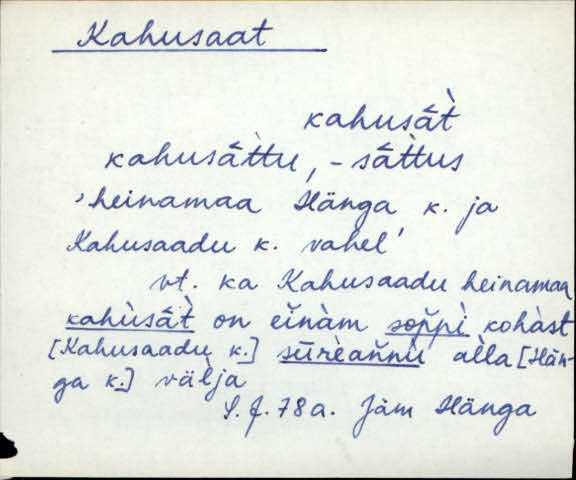 Kahusaat
kahusāt̀
kahusāt̀tu, -sāt̀tus
'heinamaa Hänga k. ja
Kahusaadu k. vahel'
vt. ka Kahusaadu heinamaa
kahùsāt̀ on eĭnàm sop̆pì kohàst
[Kahusaadu k.] sūrèan̆nù alla [Hän-
ga k.] välja
S. J. 78a. Jäm Hänga